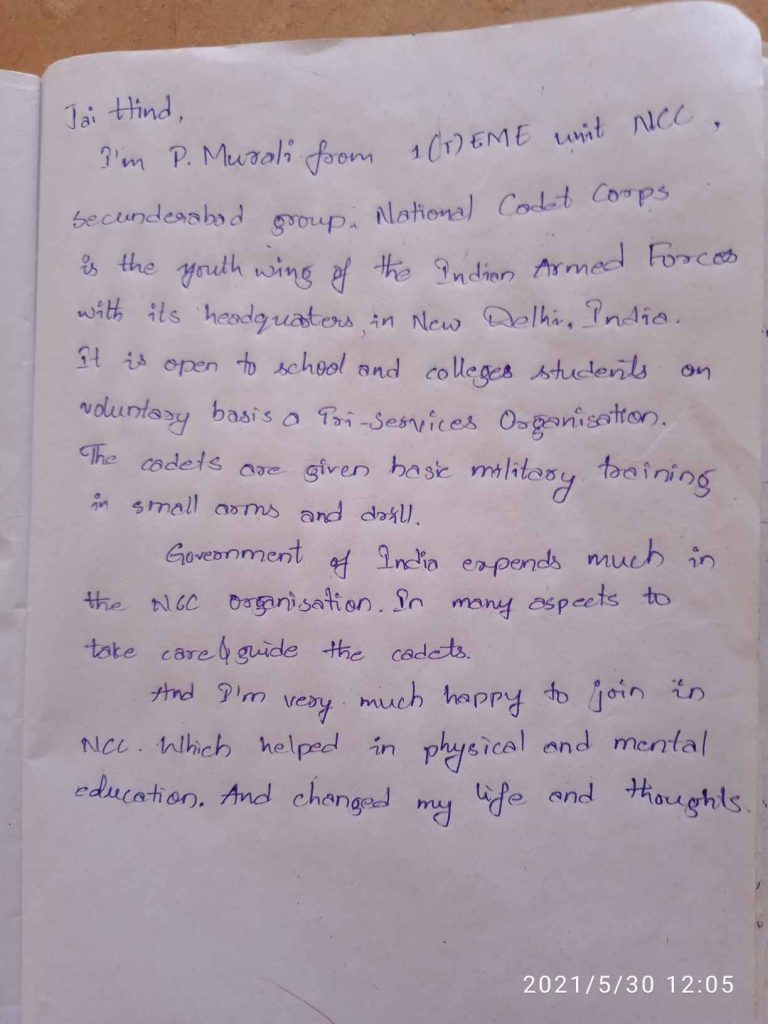 Jai Hind,
I'm P. Murali from 1(T) EME unit NCC,
secunderabad group. National Cadet Corps
is the youth wing of the Indian Armed Forces
with its headquaters, in New Delhi, India.
It is open to school and colleges students on
voluntary basis a Tri-Services Organisation.
The cadets are given basic military training
in small arms and drill.
Government of India expends much in
the NCC organisation. In many aspects to
take care & guide the cadets.
And I'm very much happy to join in
NCC. Which helped in physical and mental
education. And changed my life and thoughts.
2021/5/30 12:05